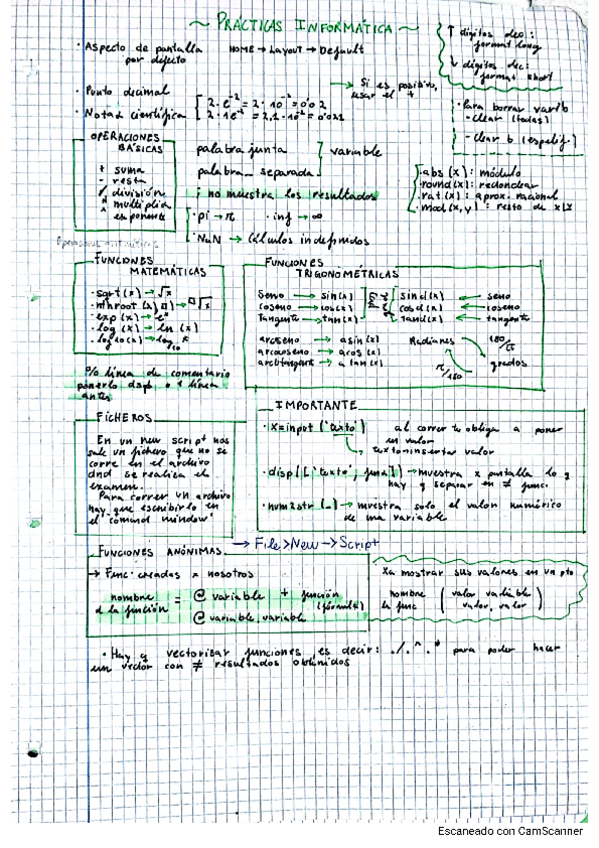 ~ PRÁCTICAS INFORMÁTICA ~
↑ dígitos dec:
format long
↓ dígitos dec:
format short
· Aspecto de pantalla
por defecto
HOME → Layout → Default
→ Si es positivo,
usar el +
· Punto decimal
· Notac científica
2·e⁻² = 2·10⁻² = 0'02
· Para borrar variab
- clear (todas)
- clear b (especif.)
OPERACIONES
BÁSICAS
+ suma
- resta
/ división
* multiplic
^ exponente
palabra junta
palabra_separada
variable
; no muestra los resultados
· pi → π · inf → ∞
· NaN → Cálculos indefinidos
· abs (x): módulo
· round (x): redondear
· rat (x): aprox. racional
· mod (x,y): resto de
FUNCIONES
MATEMÁTICAS
· sqrt (x) → √x
· exp (x) → eˣ
· log (x) → ln (x)
· log10 (x) → log₁₀ x
FUNCIONES
TRIGONOMÉTRICAS
Seno → sin (x)
Coseno → cos (x)
Tangente → tan (x)
sind (x) ← seno
cosd (x) ← coseno
tand (x) ← tangente
arcseno → asin (x)
arcocoseno → acos (x)
arcotangente → atan (x)
Radianes
180/π
grados
π/180
% línea de comentario
ponerlo dsp. o 1 línea
antes
FICHEROS
En un new script nos
sale un fichero que no se
corre en el archivo
dnd se realiza el
examen.
Para correr un archivo
hay que escribirlo en
el comand window
IMPORTANTE
· X=input ('texto')
al correr te obliga a poner
un valor
texto insertar valor
· disp (['texto', func]) → muestra x pantalla lo q
hay q separar en ≠ func.
· num2str (_) → muestra solo el valor numérico
de una variable
→ File > New → Script
FUNCIONES ANÓNIMAS
→ Func. creadas x nosotros
nombre
d la función
= @ variable + función
(fórmula)
@ variable, variable
Xa mostrar sus valores en un pto
nombre
la func
(valor variable
valor, valor)
· Hay q vectorizar funciones es decir: ./.^.* para poder hacer
un vector con ≠ resultados obtenidos
Escaneado con CamScanner